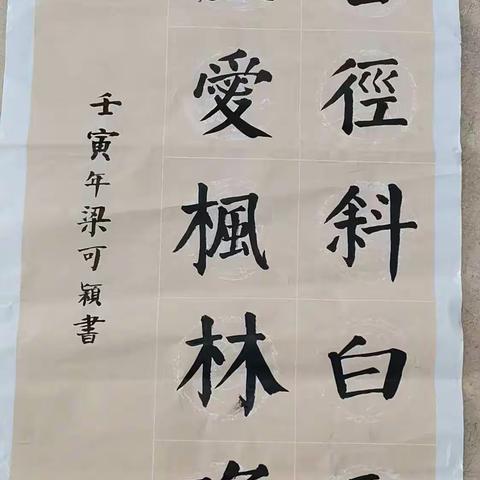 徑斜白
愛楓林
壬寅年梁可穎書